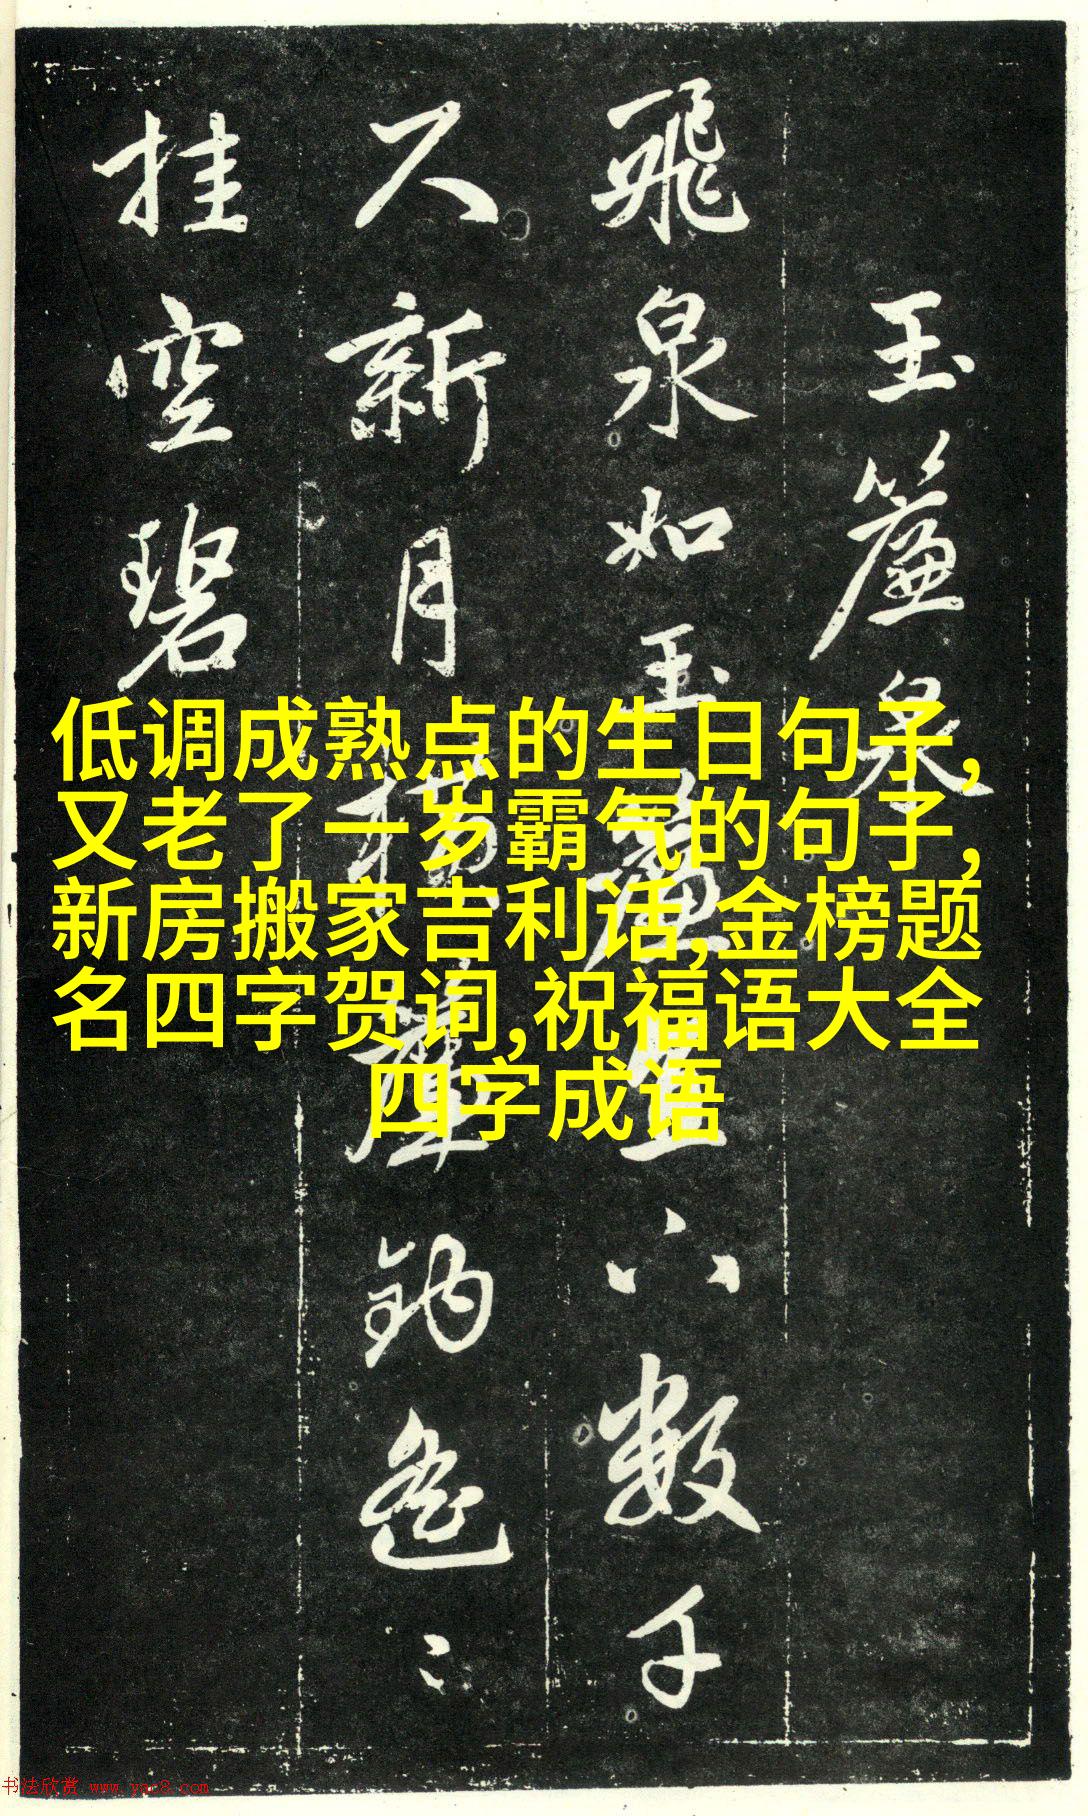 玉簾泉
飛泉如玉簾直下數千
尺新月橫簾鉤遙〻
挂空碧
低调成熟点的生日句子,
又老了一岁霸气的句子,
新房搬家吉利话,金榜题
名四字贺词,祝福语大全
四字成语
书法欣赏 www.yac8.com